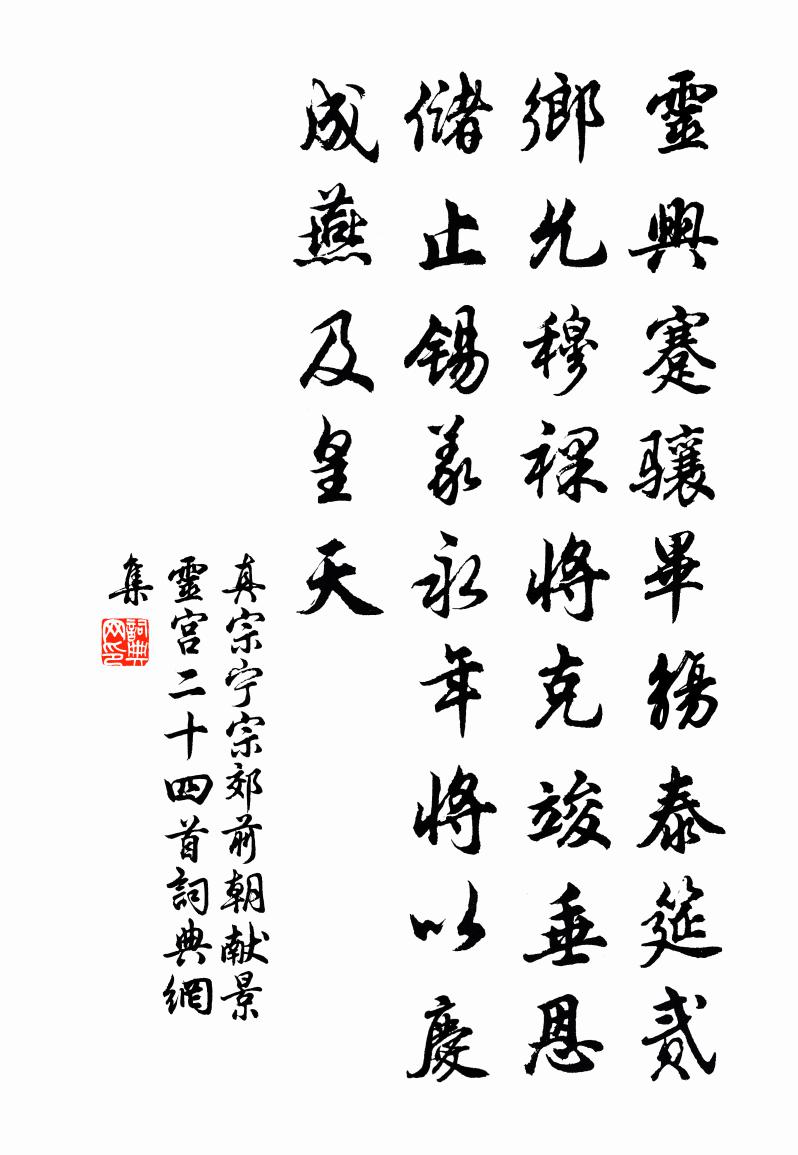 靈興蹇驤畢觴泰筵貳
鄉允穆裸將克竣垂恩
儲止錫羨永年將以慶
成燕及皇天
真宗宁宗郊前朝献景
靈宫二十四首詞典網
集
詞典
网印